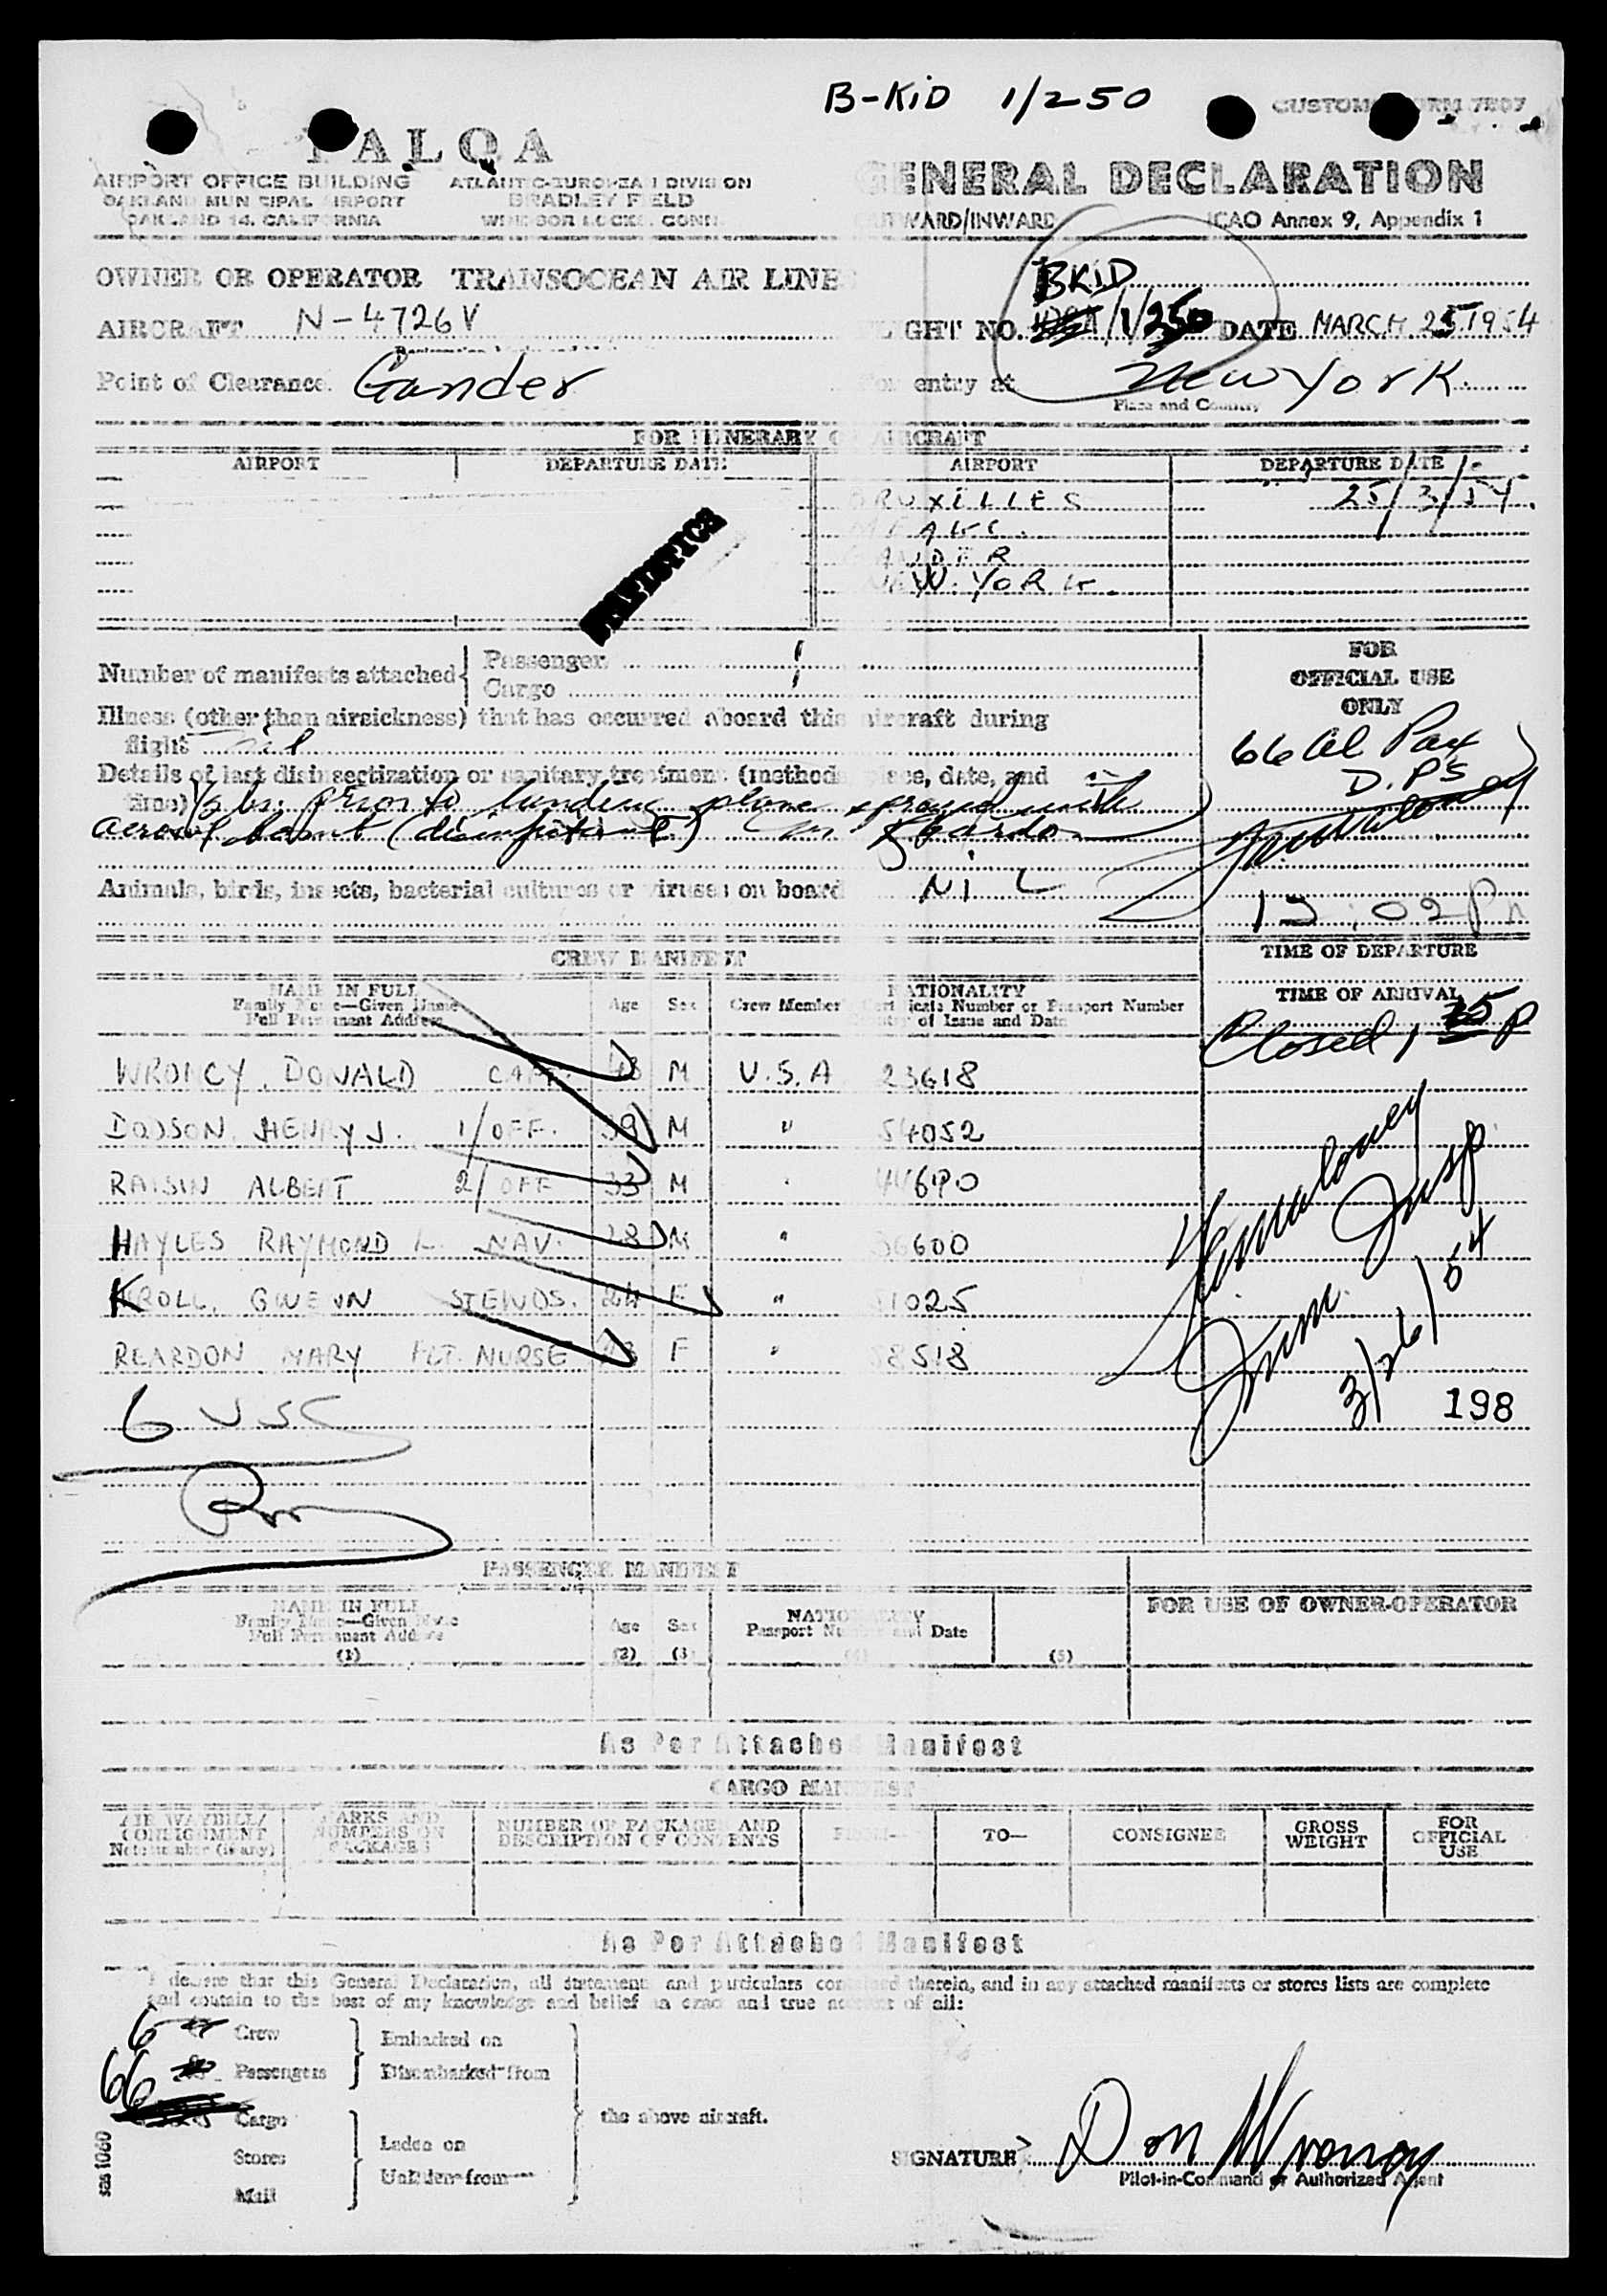 B-KiD 1/250
CUSTOMS FORM 7507
TALOA
AIRPORT OFFICE BUILDING
OAKLAND MUNICIPAL AIRPORT
OAKLAND 14, CALIFORNIA
ATLANTIC-EUROPEAN DIVISION
BRADLEY FIELD
WINDSOR LOCKS, CONN.
GENERAL DECLARATION
OUTWARD/INWARD
ICAO Annex 9, Appendix 1
OWNER OR OPERATOR TRANSOCEAN AIR LINES
BKiD
AIRCRAFT N-4726V
FLIGHT NO. 1/250 DATE MARCH 25 1954
Point of Clearance Gander
For entry at New York
Place and Country
FOR ITINERARY OF AIRCRAFT
AIRPORT DEPARTURE DATE AIRPORT DEPARTURE DATE
BRUXELLES 25/3/54
GANDER
NEW YORK
STATISTICS
Number of manifests attached Passenger 1
Cargo 1
FOR
OFFICIAL USE
ONLY
Illness (other than airsickness) that has occurred aboard this aircraft during
flight nil
66 al Pax
D.P's
Details of last disinsectization or sanitary treatment (method, place, date, and
time) 1/2 hr. prior to landing plane sprayed with
aerosol bomb (disinfectant) M Reardon
Animals, birds, insects, bacterial cultures or viruses on board NIL
12:02 P
TIME OF DEPARTURE
CREW MANIFEST
TIME OF ARRIVAL
NAME IN FULL
Family Name—Given Name
Full Permanent Address
Age Sex Crew Member
NATIONALITY
Certificate Number or Passport Number
Country of Issue and Date
Closed 1 35 P
WRONCY, DONALD CAPT. 48 M U.S.A 23618
DODSON, HENRY J. 1/OFF. 39 M " 54052
RAISIN ALBERT 2/OFF 33 M " 44690
HAYLES RAYMOND L. NAV. 28 M " 36600
KROLL, GWENN STEWDS. 24 F " 51025
REARDON MARY FLT. NURSE F " 58518
6 USC
Imm. Insp
3/26/54
198
PASSENGER MANIFEST
NAME IN FULL
Family Name—Given Name
Full Permanent Address
(1)
Age
(2)
Sex
(3)
NATIONALITY
Passport Number and Date
(4)
(5)
FOR USE OF OWNER-OPERATOR
As Per Attached Manifest
CARGO MANIFEST
AIR WAYBILL/
CONSIGNMENT
Note number (if any)
MARKS AND
NUMBERS ON
PACKAGES
NUMBER OF PACKAGES AND
DESCRIPTION OF CONTENTS
FROM—
TO—
CONSIGNEE
GROSS
WEIGHT
FOR
OFFICIAL
USE
As Per Attached Manifest
I declare that this General Declaration, all statements and particulars contained therein, and in any attached manifests or stores lists are complete
and contain to the best of my knowledge and belief an exact and true account of all:
6 Crew
66 Passengers
Embarked on
Disembarked from
Cargo
Stores
Mail
Laden on
Unladen from
the above aircraft.
SIGNATURE Don Wroncy
Pilot-in-Command or Authorized Agent
sas 1060